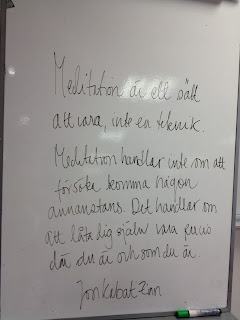 Meditation är ett sätt
att vara, inte en teknik.
Meditation handlar inte om att
försöka komma någon
annanstans. Det handlar om
att låta dig själv vara precis
där du är och som du är.
Jon Kabat Zinn